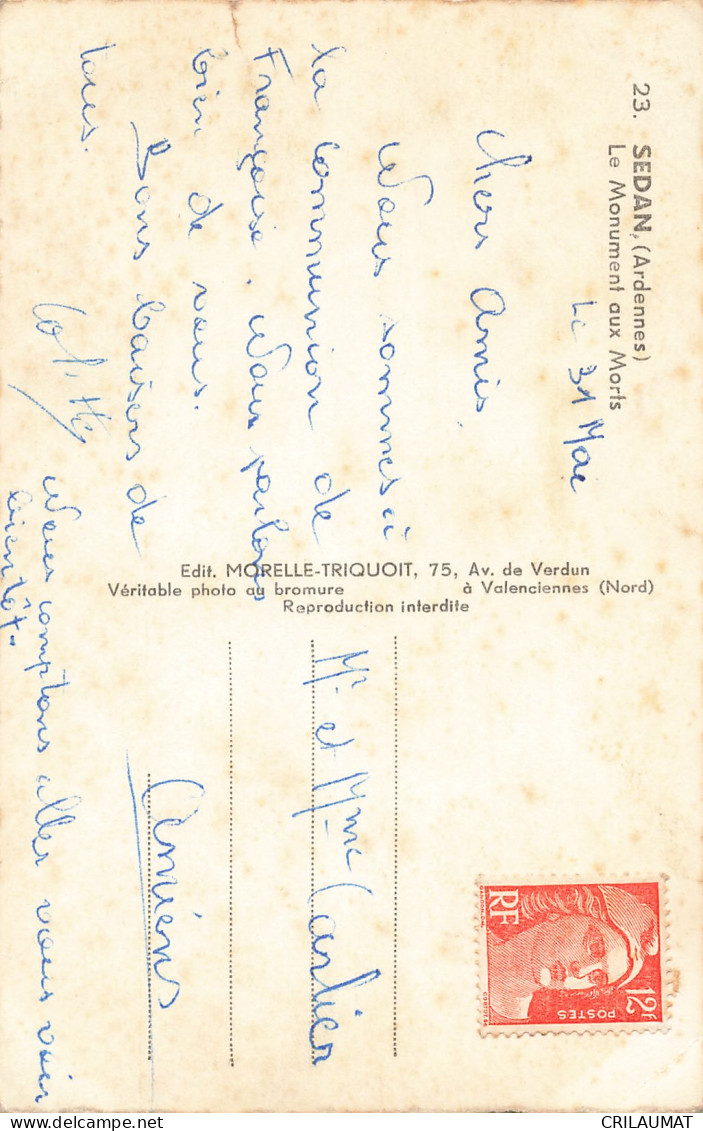 23. SEDAN, (Ardennes)
Le Monument aux Morts
Le 31 Mai
Chers Amis,
Nous sommes à
la communion de
Françoise. Nous parlons
bien de vous.
Bons baisers de
tous.
Nous comptons aller vous voir
bientôt.
Edit. MORELLE-TRIQUOIT, 75, Av. de Verdun
Véritable photo au bromure à Valenciennes (Nord)
Reproduction interdite
Mr et Mme Carlier
Amiens
RF
12F
POSTES
CRILAUMAT